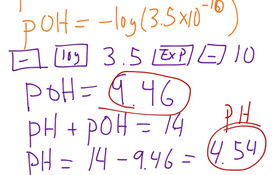 pOH = -log(3.5x10⁻¹⁰)
- log 3.5 EXP - 10
pOH = 9.46
pH + pOH = 14
pH
pH = 14 - 9.46 = 4.54